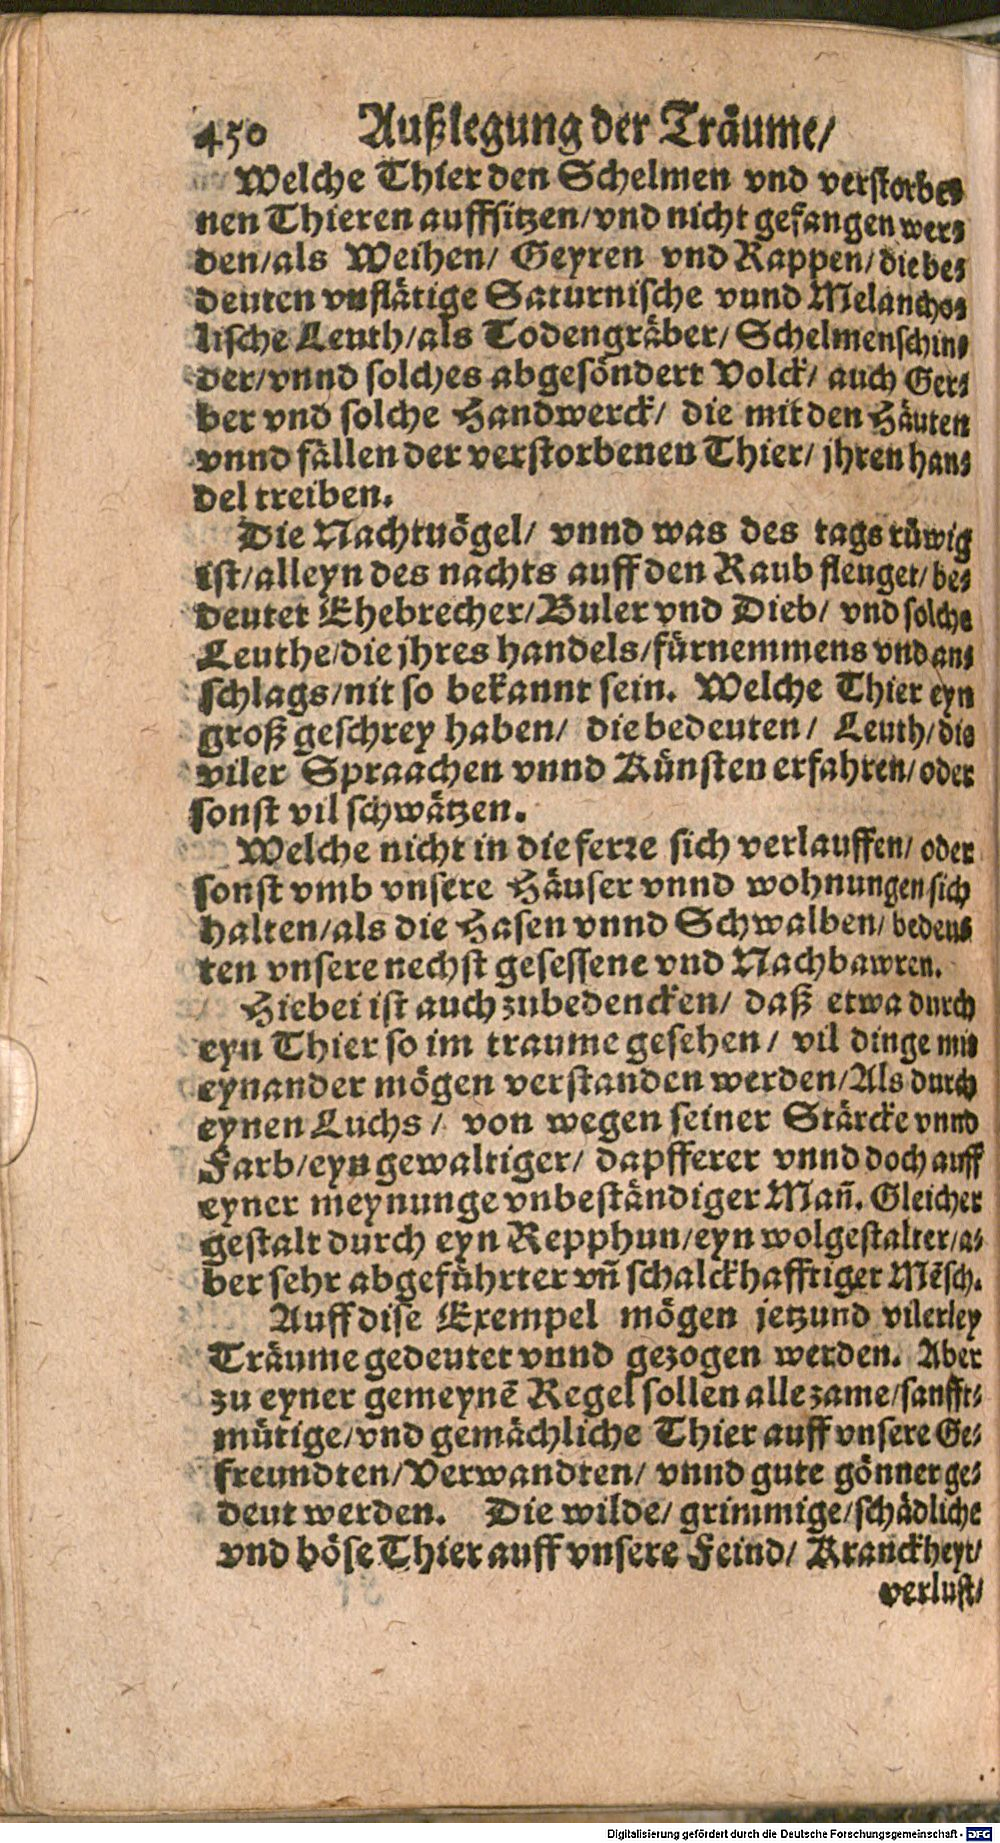 450 Außlegung der Träume/
Welche Thier den Schelmen vnd verstorbe-
nen Thieren auffsitzen/vnd nicht gefangen wer-
den/als Weihen/ Geyren vnd Rappen/die be-
deuten vnflätige Saturnische vnnd Melancho-
lische Leuth/als Todengräber/ Schelmenschin-
der/vnnd solches abgesöndert Volck/ auch Ger-
ber vnd solche Handwerck/ die mit den Häuten
vnnd fällen der verstorbenen Thier/ jhren han-
del treiben.
Die Nachtuögel/ vnnd was des tags rüwig
ist/alleyn des nachts auff den Raub fleuget/be-
deutet Ehebrecher/Buler vnd Dieb/ vnd solche
Leuthe/die jhres handels/fürnemmens vnd an-
schlags/nit so bekannt sein. Welche Thier eyn
groß geschrey haben/ die bedeuten/ Leuth/die
viler Spraachen vnnd Künsten erfahren/oder
sonst vil schwätzen.
Welche nicht in die ferre sich verlauffen/ oder
sonst vmb vnsere Häuser vnnd wohnungen sich
halten/als die Hasen vnnd Schwalben/ bedeu-
ten vnsere nechst gesessene vnd Nachbawren.
Hiebei ist auch zubedencken/ daß etwa durch
eyn Thier so im traume gesehen/ vil dinge mit
eynander mögen verstanden werden/Als durch
eynen Luchs/ von wegen seiner Stärcke vnnd
Farb/eyn gewaltiger/ dapfferer vnnd doch auff
eyner meynunge vnbeständiger Mañ. Gleicher
gestalt durch eyn Repphun/eyn wolgestalter/a-
ber sehr abgeführter vñ schalckhafftiger Mẽsch.
Auff dise Exempel mögen jetzund vilerley
Träume gedeutet vnnd gezogen werden. Aber
zu eyner gemeynẽ Regel sollen alle zame/sanfft-
mütige/vnd gemächliche Thier auff vnsere Ge-
freundten/Verwandten/ vnnd gute gönner ge-
deut werden. Die wilde/ grimmige/schädliche
vnd böse Thier auff vnsere Feind/ Kranckheyt/
verlust/
Digitalisierung gefördert durch die Deutsche Forschungsgemeinschaft - DFG